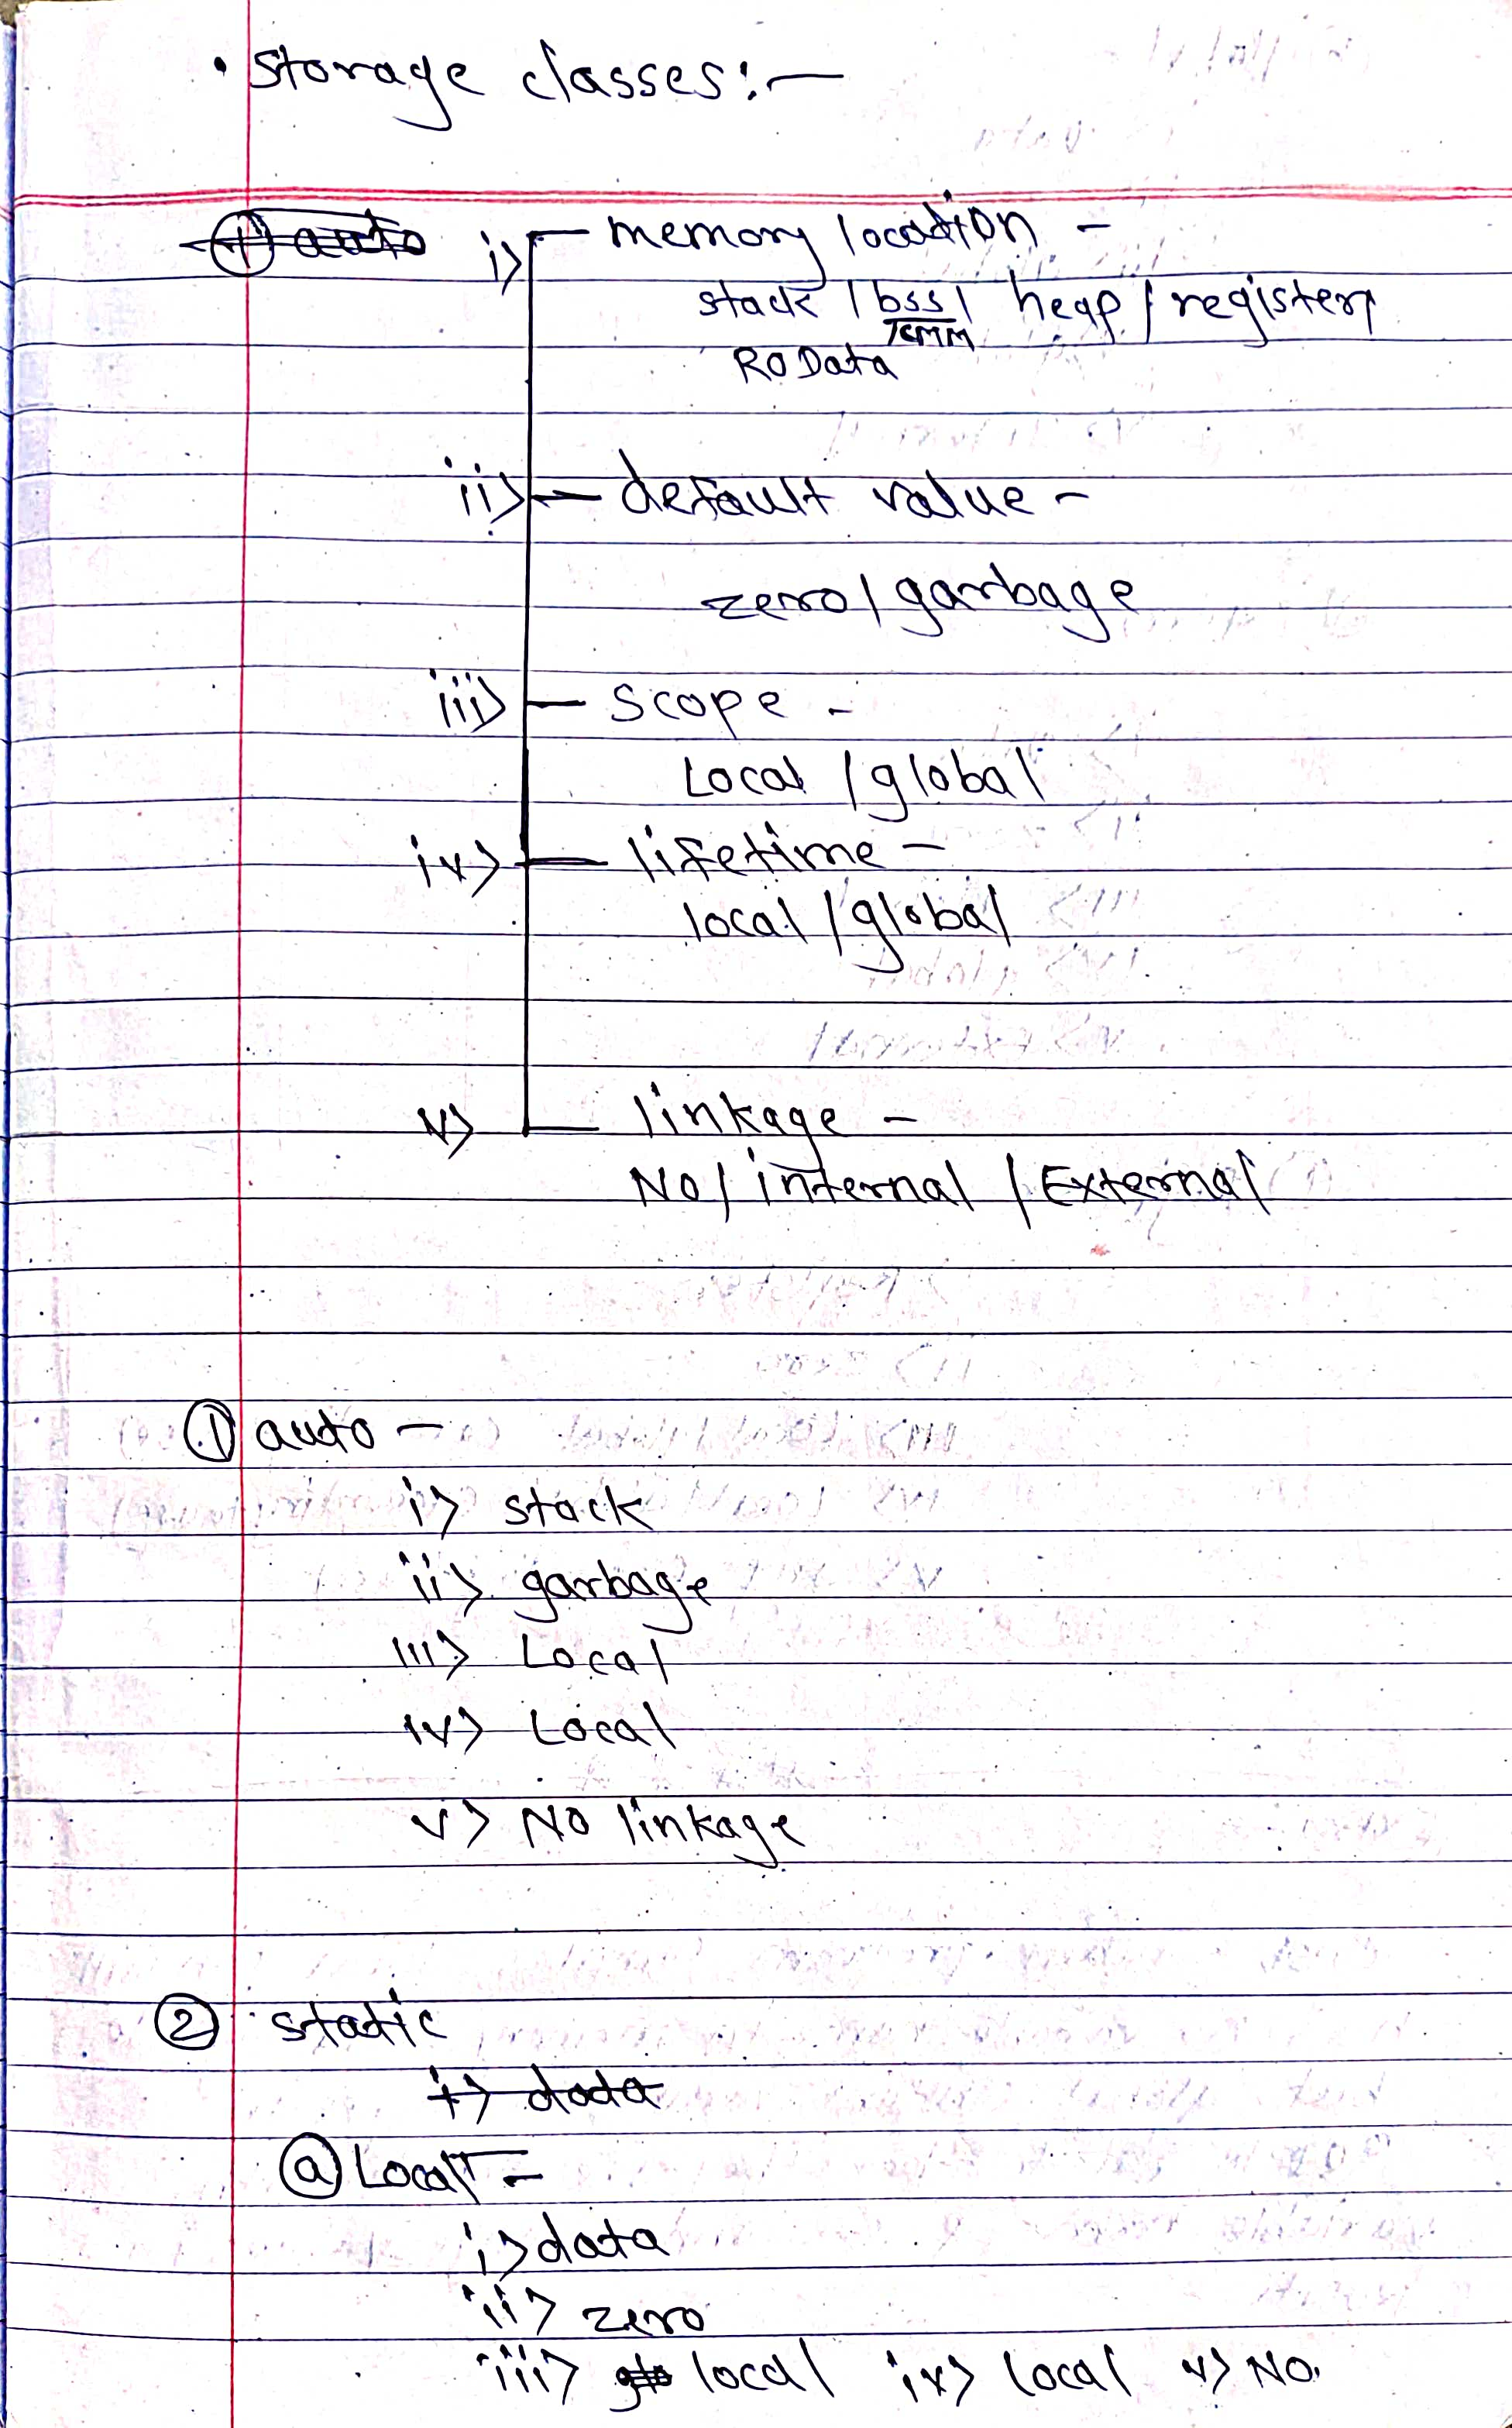 • Storage classes:-
① auto i> memory location -
stack / bss / heap / register
RO Data
ii> default value -
zero / garbage
iii> scope -
Local / global
iv> lifetime -
local / global
v> linkage -
No / internal / External
① auto -
i> stack
ii> garbage
iii> Local
iv> Local
v> No linkage
② static
i> data
ⓐ Local -
i> data
ii> zero
iii> local iv> local v> No.